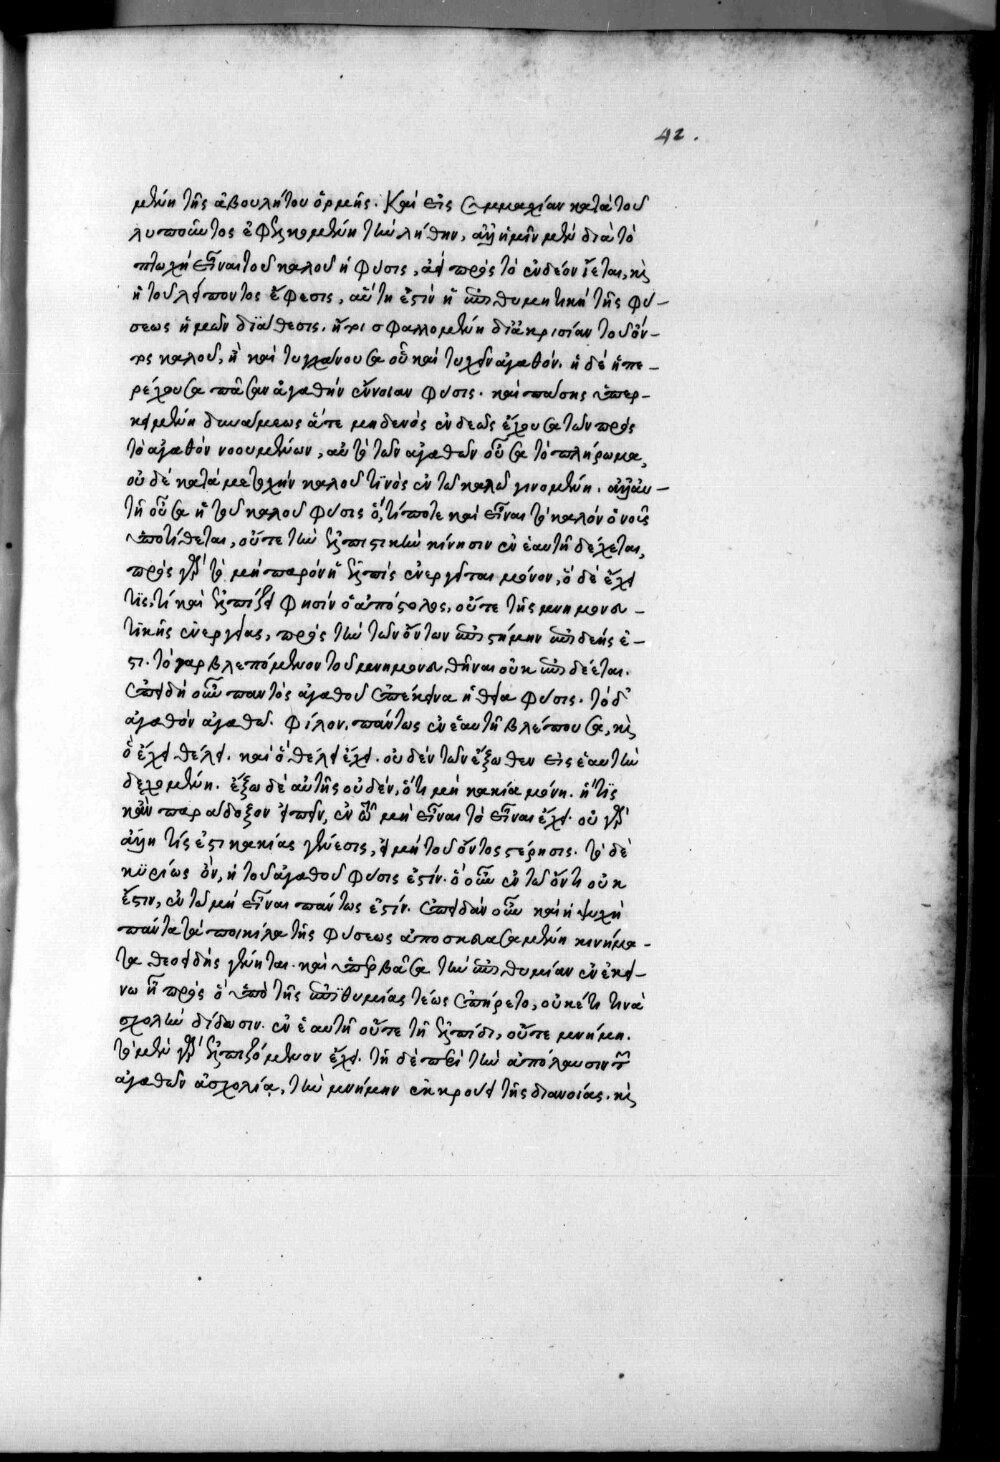 42.
μένη τῆς ἀβουλήτου ὁρμῆς. Καὶ εἰς συμμαχίαν κατὰ τοῦ
λυποῦντος ἐφελκομένη τὴν λήθην, ἀλλ' ἡμῖν μὲν διὰ τὸ
πτωχὴ εἶναι τοῦ καλοῦ ἡ φύσις, ἀεὶ πρὸς τὸ ἐνδέον ἵεται, καὶ
ἡ τοῦ λείποντος ἔφεσις, αὕτη ἐστὶν ἡ ἐπιθυμητικὴ τῆς φύ-
σεως ἡμῶν διάθεσις. ἤτοι σφαλλομένη δι' ἀκρισίαν τοῦ ὄν-
τος καλοῦ, ἢ καὶ τυγχάνουσα οὗ καὶ τυχεῖν ἀγαθόν. ἡ δὲ ὑπε-
ρέχουσα πᾶσαν ἀγαθὴν ἔννοιαν φύσις. καὶ πάσης ὑπερ-
κειμένη δυνάμεως ἅτε μηδενὸς ἐνδεῶς ἔχουσα τῶν πρὸς
τὸ ἀγαθὸν νοουμένων, αὐτὸ τῶν ἀγαθῶν οὖσα τὸ πλήρωμα,
οὐδὲ κατὰ μετοχὴν καλοῦ τινὸς ἐν τῷ καλῷ γινομένη. ἀλλ' αὐ-
τὴ οὖσα ἡ τοῦ καλοῦ φύσις ὅ, τί ποτε καὶ εἶναι τὸ καλὸν ὁ νοῦς
ὑποτίθεται, οὔτε τὴν ἐλπιστικὴν κίνησιν ἐν ἑαυτῇ δέχεται,
πρὸς γὰρ τὸ μὴ παρὸν ἡ ἐλπὶς ἐνεργεῖται μόνον, ὃ δὲ ἔχει
τίς, τί καὶ ἐλπίζει φησὶν ὁ ἀπόστολος, οὔτε τῆς μνημονευ-
τικῆς ἐνεργείας, πρὸς τὴν τῶν ὄντων ἐπιστήμην ἐπιδεής ἐ-
στι. τὸ γὰρ βλεπόμενον τοῦ μνημονευθῆναι οὐκ ἐπιδέεται.
ἐπειδὴ οὖν παντὸς ἀγαθοῦ ἐπέκεινα ἡ θεία φύσις. τὸ δ'
ἀγαθὸν ἀγαθῷ φίλον πάντως ἐν ἑαυτῇ βλέπουσα, καὶ
ὃ ἔχει θέλει. καὶ ὃ θέλει ἔχει. οὐδὲν τῶν ἔξωθεν εἰς ἑαυτὴν
δεχομένη. ἔξω δὲ αὐτῆς οὐδὲν, ὅτι μὴ κακία μόνη. ἥ τις
κἂν παράδοξον εἰπεῖν, ἐν τῷ μὴ εἶναι τὸ εἶναι ἔχει. οὐ γὰρ
ἄλλη τίς ἐστι κακίας γένεσις, εἰ μὴ τοῦ ὄντος στέρησις. τὸ δὲ
κυρίως ὂν, ἡ τοῦ ἀγαθοῦ φύσις ἐστίν. ὃ οὖν ἐν τῷ ὄντι οὐκ
ἔστιν, ἐν τῷ μὴ εἶναι πάντως ἐστίν. ἐπειδὰν οὖν καὶ ἡ ψυχὴ
πάντα τὰ ποικίλα τῆς φύσεως ἀποσκευασαμένη κινήμα-
τα θεοειδὴς γένηται. καὶ ὑπερβᾶσα τὴν ἐπιθυμίαν ἐν ἐκεί-
νῳ ᾖ πρὸς ὃ ὑπὸ τῆς ἐπιθυμίας τέως ἐπήρετο, οὐκέτι τινὰ
σχολὴν δίδωσιν ἐν ἑαυτῇ οὔτε τῇ ἐλπίδι, οὔτε μνήμῃ.
τὸ μὲν γὰρ ἐλπιζόμενον ἔχει. τῇ δὲ περὶ τὴν ἀπόλαυσιν τῶν
ἀγαθῶν ἀσχολίᾳ, τὴν μνήμην ἐκκρούει τῆς διανοίας. καὶ